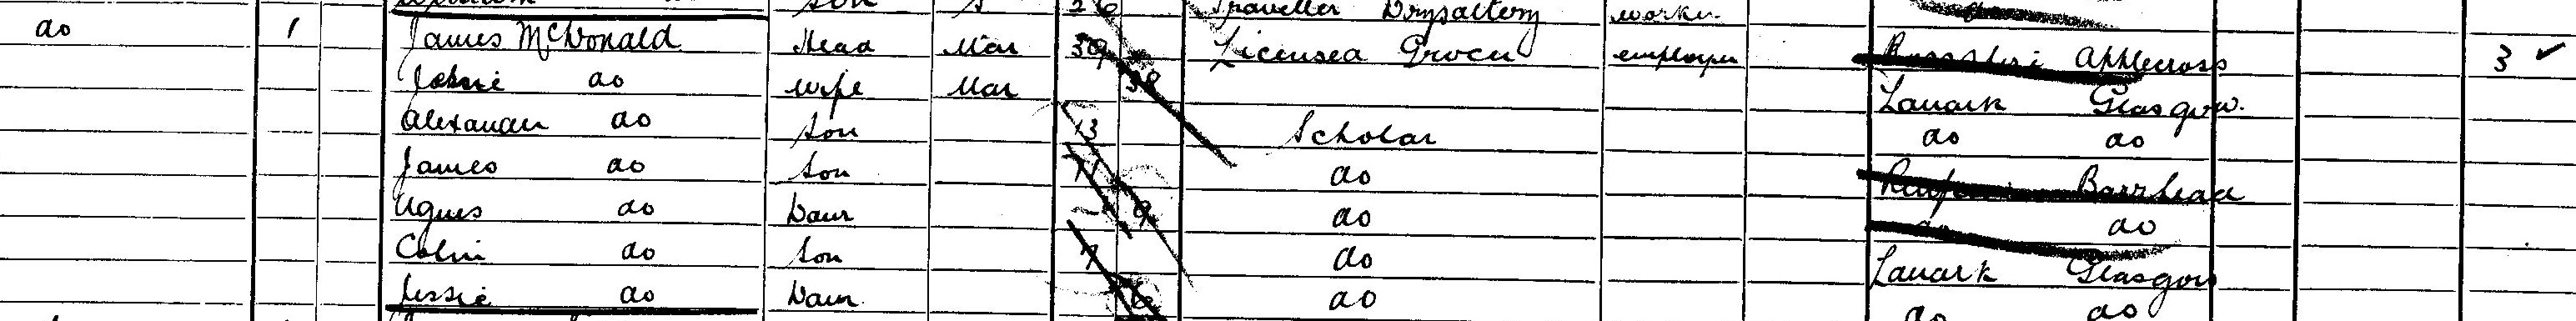 son S 26 Traveller Drysaltery worker
do 1 James McDonald Head Mar 39 Licensed Grocer employer Ross-shire Applecross 3 ✓
Jessie do Wife Mar 38 Lanark Glasgow
Alexander do Son 13 Scholar do do
James do Son 11 do Renfrew Barrhead
Agnes do Daur 9 do do do
Colin do Son 7 do Lanark Glasgow
Jessie do Daur 6 do do do